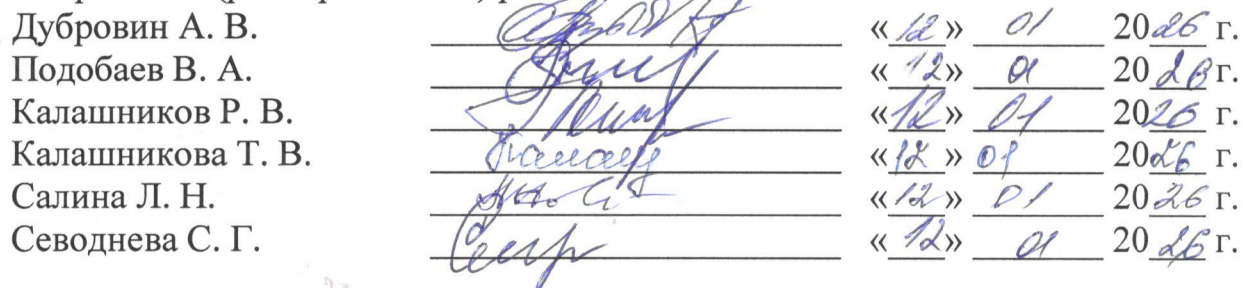 Дубровин А. В. «12» 01 2026 г.
Подобаев В. А. «12» 01 2026 г.
Калашников Р. В. «12» 01 2026 г.
Калашникова Т. В. «12» 01 2026 г.
Салина Л. Н. «12» 01 2026 г.
Севоднева С. Г. «12» 01 2026 г.